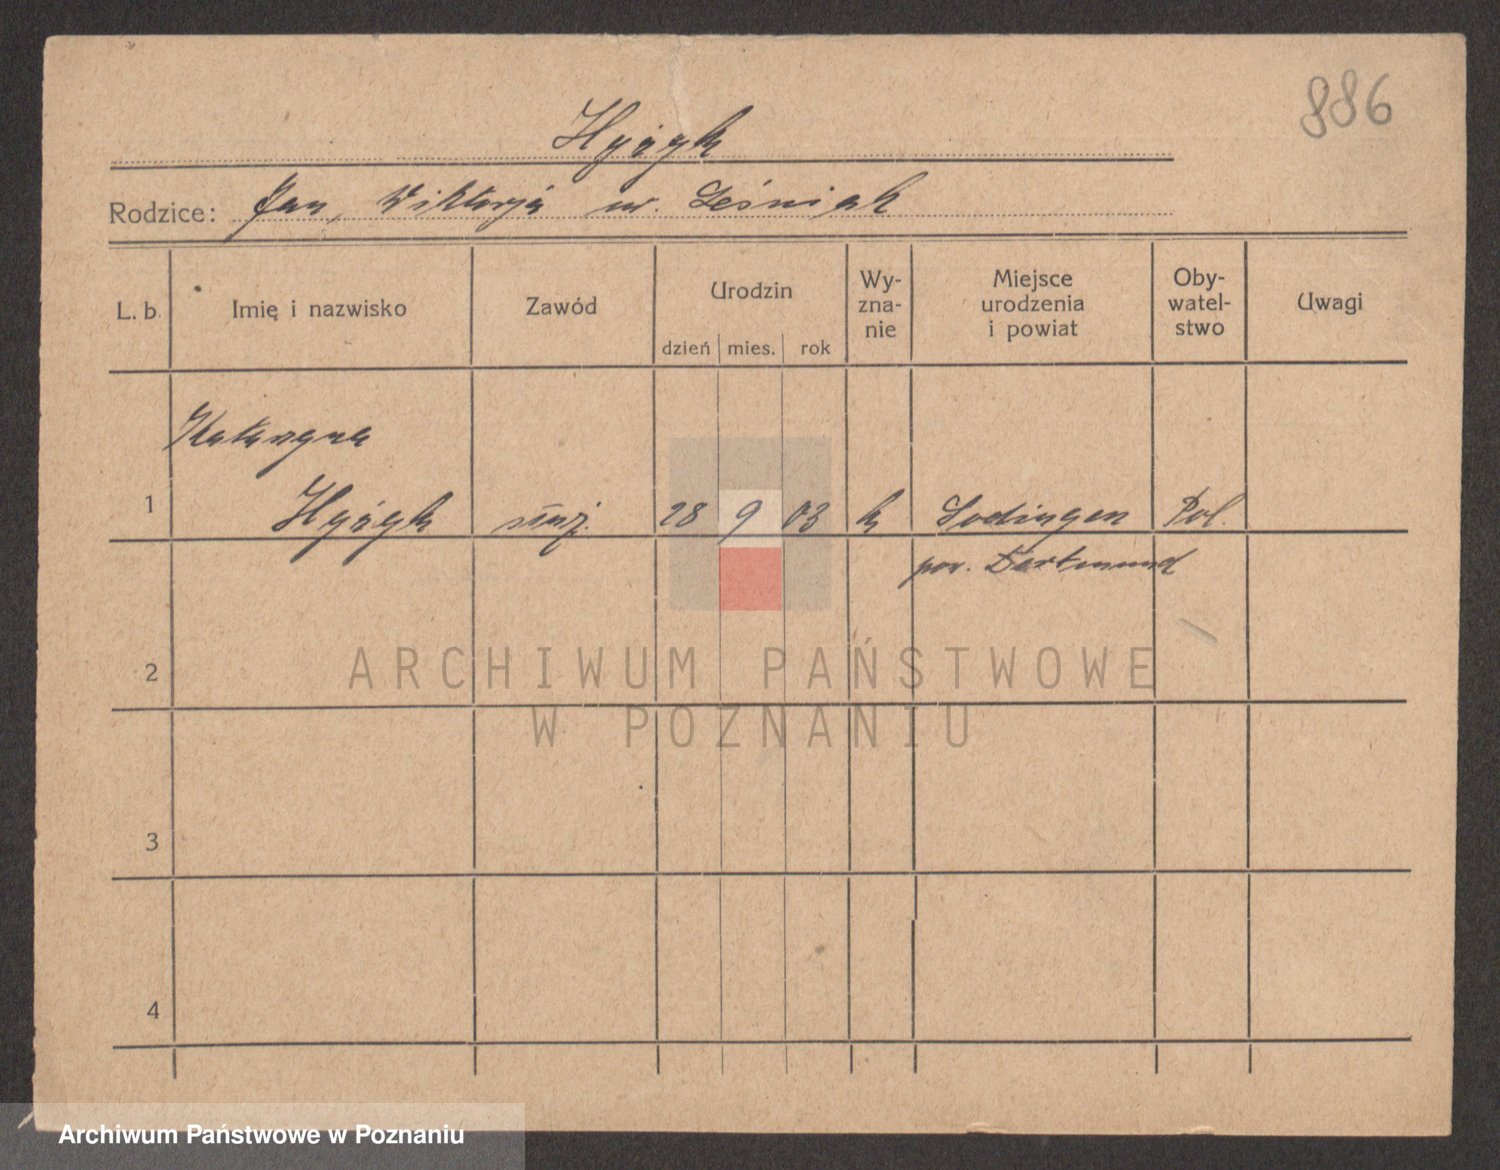 886
Hyżyk
Rodzice: Jan, Wiktorja ur. Leśniak
L. b. Imię i nazwisko Zawód Urodzin dzień mies. rok Wy-zna-nie Miejsce urodzenia i powiat Oby-watel-stwo Uwagi
Katarzyna
1 Hyżyk służ. 28 9 03 k Sodingen Pol.
pow. Dortmund
2
ARCHIWUM PAŃSTWOWE
W POZNANIU
3
4
Archiwum Państwowe w Poznaniu